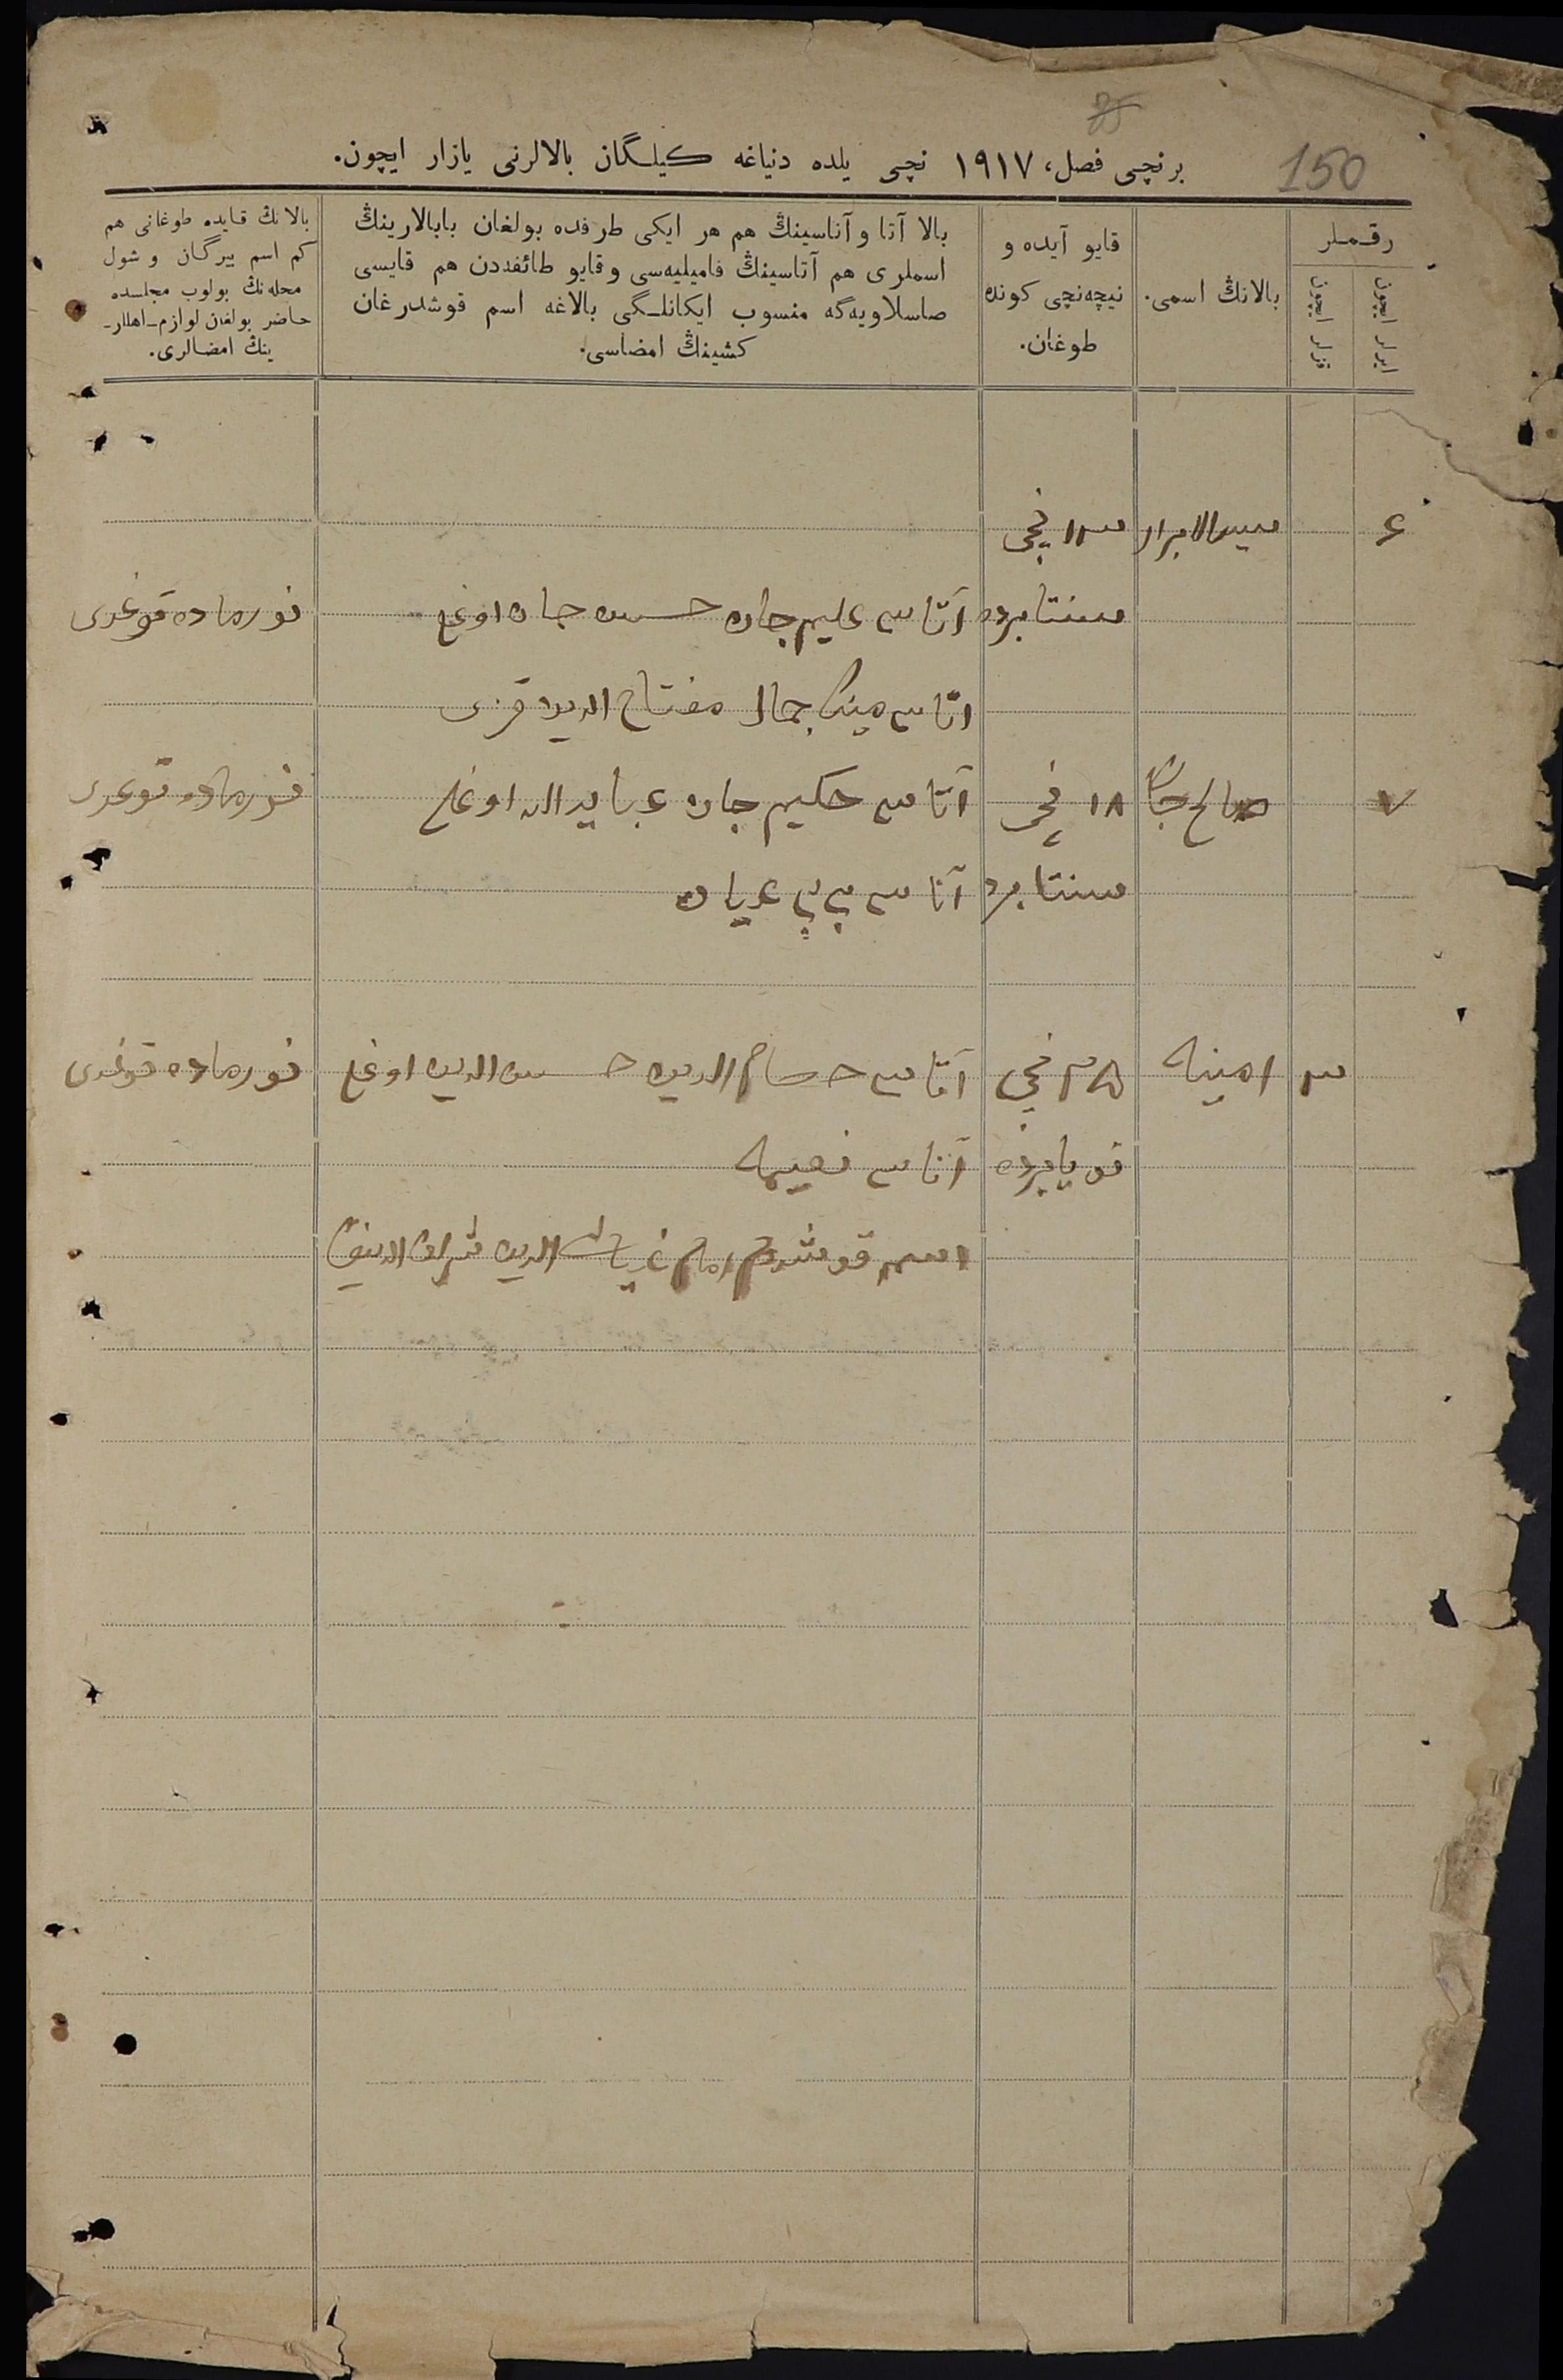 150
برنچی فصل، ١٩١٧ نچی یلده دنیاغه کیلگان بالالرنی یازار ایچون.
رقملر
ایرلر ایچون
قزلر ایچون
بالانڭ اسمی.
قایو آیده و
نیچه‌نچی کونده
طوغان.
بالا آتا و آناسینڭ هم هر ایکی طرفده بولغان بابالارینڭ
اسملری هم آتاسینڭ فامیلیه‌سی و قایو طائفه‌دن هم قایسی
صاسلاویه‌گه منسوب ایکانلـگی بالاغه اسم قوشدرغان
کشینڭ امضاسی.
بالانڭ قایده طوغانی هم
کم اسم بیرگان و شول
محله‌نڭ بولوب مجلسده
حاضر بولغان لوازم-اهللر-
ینڭ امضالری.
سنتابرده آتاسی علیم جان حسن جان اوغلی
اناسی مینکا جمال مفتاح الدین قزی
٧ صالح جان ١٨ نچی آتاسی حکیم جان اوغلی
سنتابرد آناسی بی بی
٣ امینه نچی آتاسی حسام الدین حسن الدین اوغلی
نویابرده آناسی نعیمه
اسم قوشدم امام غیاث الدین شرف الدینف